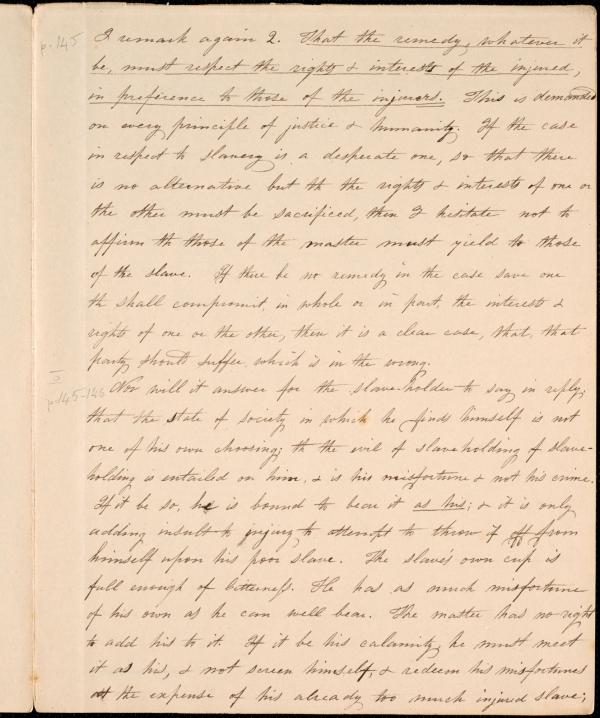 p. 145
I remark again 2. That the remedy, whatever it
be, must respect the rights & interests of the injured,
in preference to those of the injurers. This is demanded
on every principle of justice & humanity. If the case
in respect to slavery is a desperate one, so that there
is no alternative but th the rights & interests of one or
the other must be sacrificed, then I hesitate not to
affirm th those of the master must yield to those
of the slave. If there be no remedy in the case save one
th shall compromit, in whole or in part, the interests &
rights of one or the other, then it is a clear case, that, that
party should suffer, which is in the wrong.
p. 145-146
Nor will it answer for the slave-holder to say in reply,
that the state of society in which he finds himself is not
one of his own choosing; th the evil of slaveholding of slave-
holding is entailed on him, & is his misfortune & not his crime.
If it be so, he is bound to bear it as his; & it is only
adding insult to injury to attempt to throw it off from
himself upon his poor slave. The slave's own cup is
full enough of bitterness. He has as much misfortune
of his own as he can well bear. The master has no right
to add his to it. If it be his calamity, he must meet
it as his, & not screen himself, & redeem his misfortunes
at the expense of his already too much injured slave;